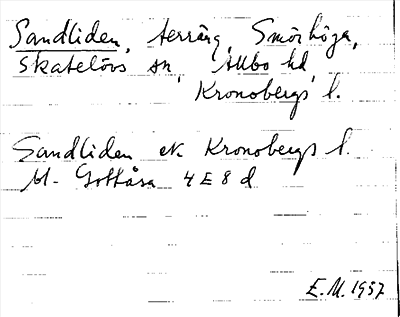 Sandliden, terräng, Smörhöga,
Skatelövs sn, Allbo hd,
Kronobergs l.
Sandliden ek Kronobergs l.
bl. Gottåsa 4 E 8 d
E.M. 1957